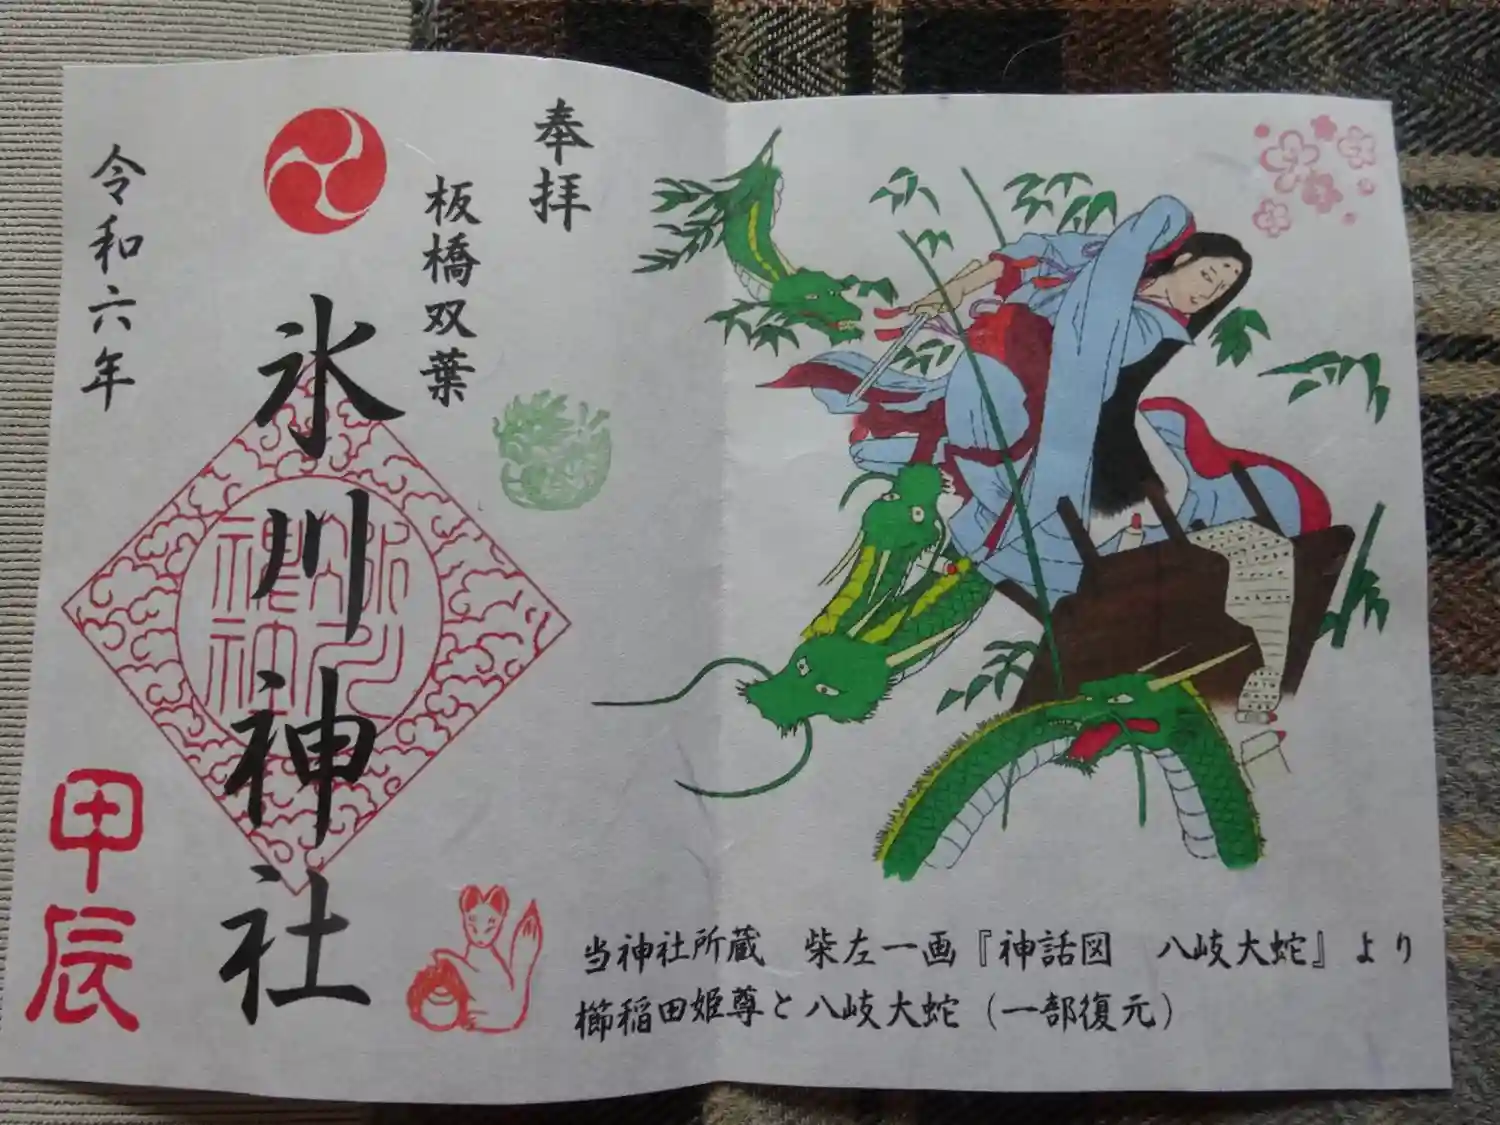 奉拝
板橋双葉
氷川神社
令和六年
甲辰
当神社所蔵　柴左一画『神話図　八岐大蛇』より
櫛稲田姫尊と八岐大蛇（一部復元）